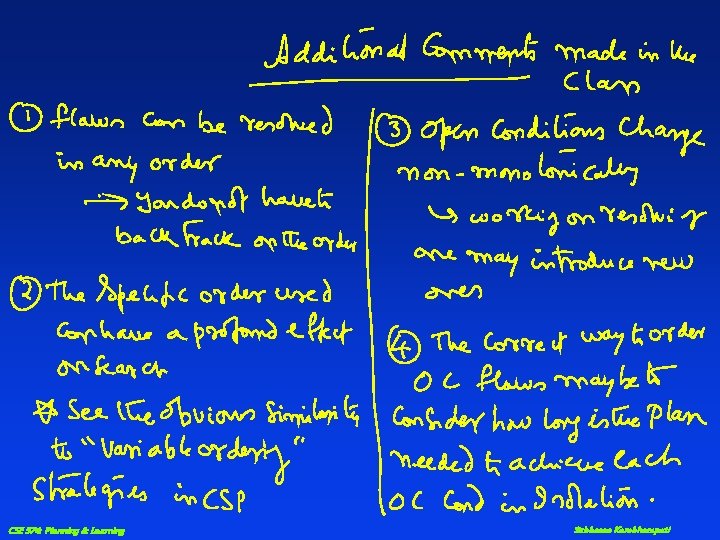 Additional Comments made in the
Class
① Flaws can be resolved
in any order
→ You do not have to
back track on the order
② The Specific order used
can have a profound effect
on search
☆ See the obvious similarity
to "Variable ordering"
Strategies in CSP
③ Open Conditions Change
non-monotonically
↳ working on resolving
one may introduce new
ones
④ The Correct way to order
OC flaws may be to
Consider how long is the Plan
needed to achieve Each
OC Cond in Isolation.
CSE 574 Planning & Learning
Subbarao Kambhampati